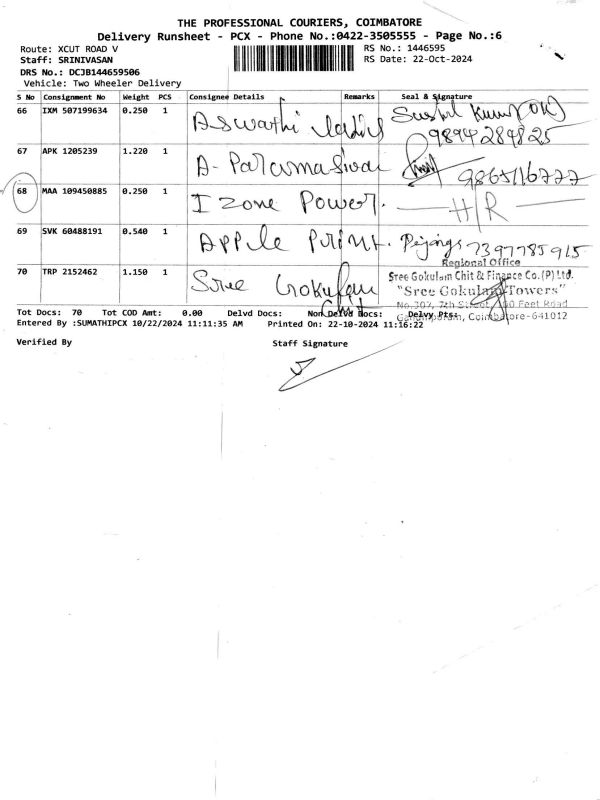 THE PROFESSIONAL COURIERS, COIMBATORE
Delivery Runsheet - PCX - Phone No.:0422-3505555 - Page No.:6
Route: XCUT ROAD V RS No.: 1446595
Staff: SRINIVASAN RS Date: 22-Oct-2024
DRS No.: DCJB144659506
Vehicle: Two Wheeler Delivery
S No Consignment No Weight PCS Consignee Details Remarks Seal & Signature
66 IXM 507199634 0.250 1 Aswathi Sushil Kumar
9894289825
67 APK 1205239 1.220 1 A. Paramasivan
9865116777
68 MAA 109450885 0.250 1 I zone Power. H/R
69 SVK 60488191 0.540 1 Apple Print. 7397785915
Regional Office
70 TRP 2152462 1.150 1 Sree Gokulam Sree Gokulam Chit & Finance Co.(P) Ltd.
Chit "Sree Gokulam Towers"
No.307, 7th Street, 100 Feet Road
Tot Docs: 70 Tot COD Amt: 0.00 Delvd Docs: Non Delvd Docs: Delvy Pts:
Gandhipuram, Coimbatore-641012
Entered By :SUMATHIPCX 10/22/2024 11:11:35 AM Printed On: 22-10-2024 11:16:22
Verified By Staff Signature